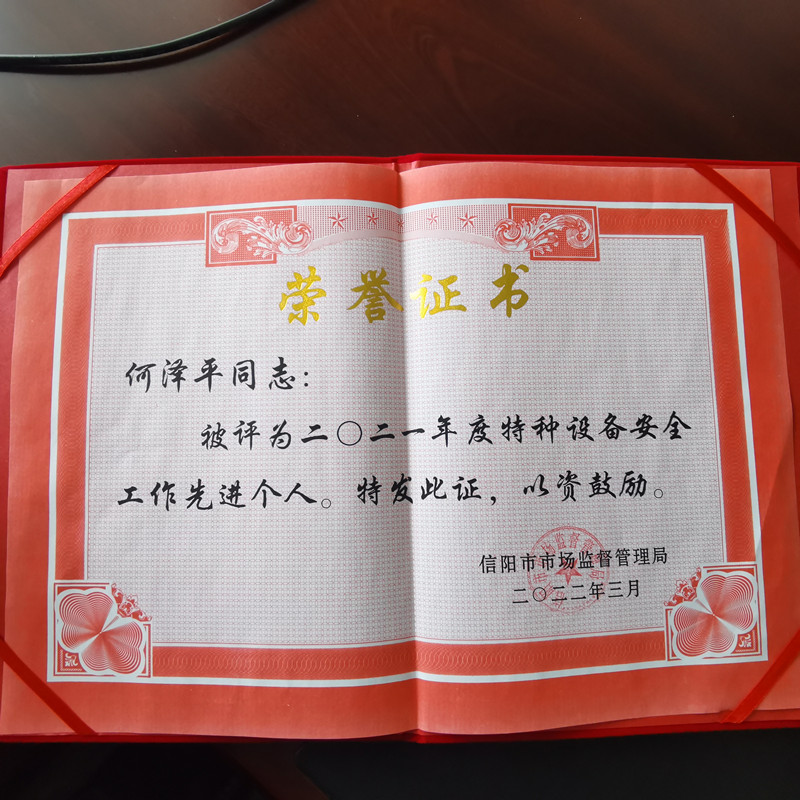 荣誉证书
何泽平同志：
被评为二〇二一年度特种设备安全
工作先进个人。特发此证，以资鼓励。
信阳市市场监督管理局
二〇二二年三月